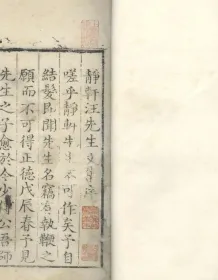 靜軒汪先生文集序
嗟乎靜軒先生不可作矣予自
結髮聞先生名竊執鞭之
願而不可得正德戊辰春予見
先生之子愈於今少傅公吾師